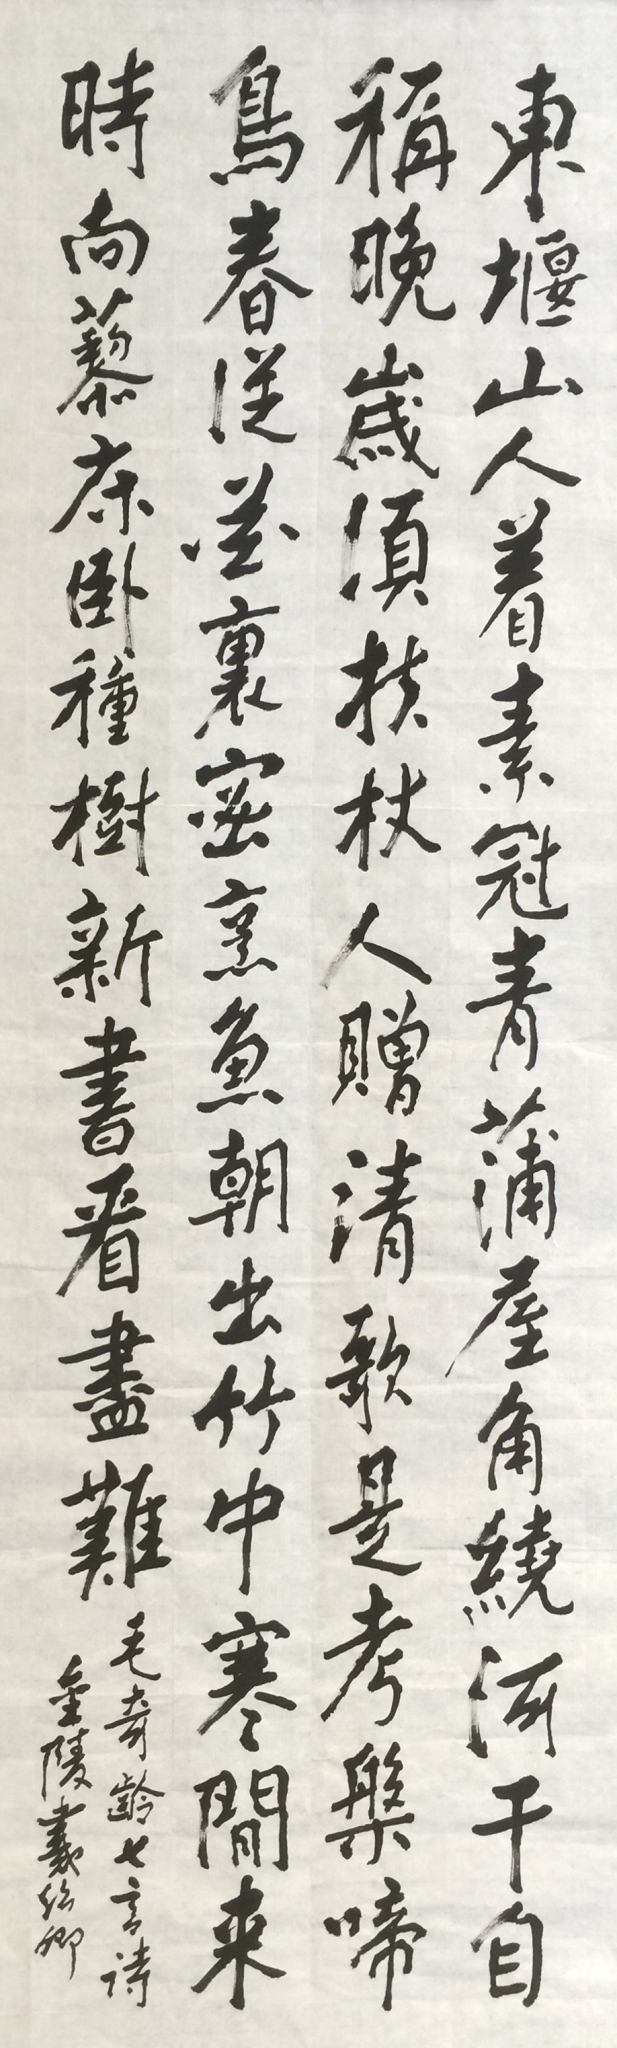 東堰山人着素冠青蒲屋角繞河干自
稱晚歲須扶杖人贈清歌是考槃啼
鳥春從花裏密烹魚朝出竹中寒閒来
時向藜床卧種樹新書看盡難
毛奇齡七言詩
金陵義行卿